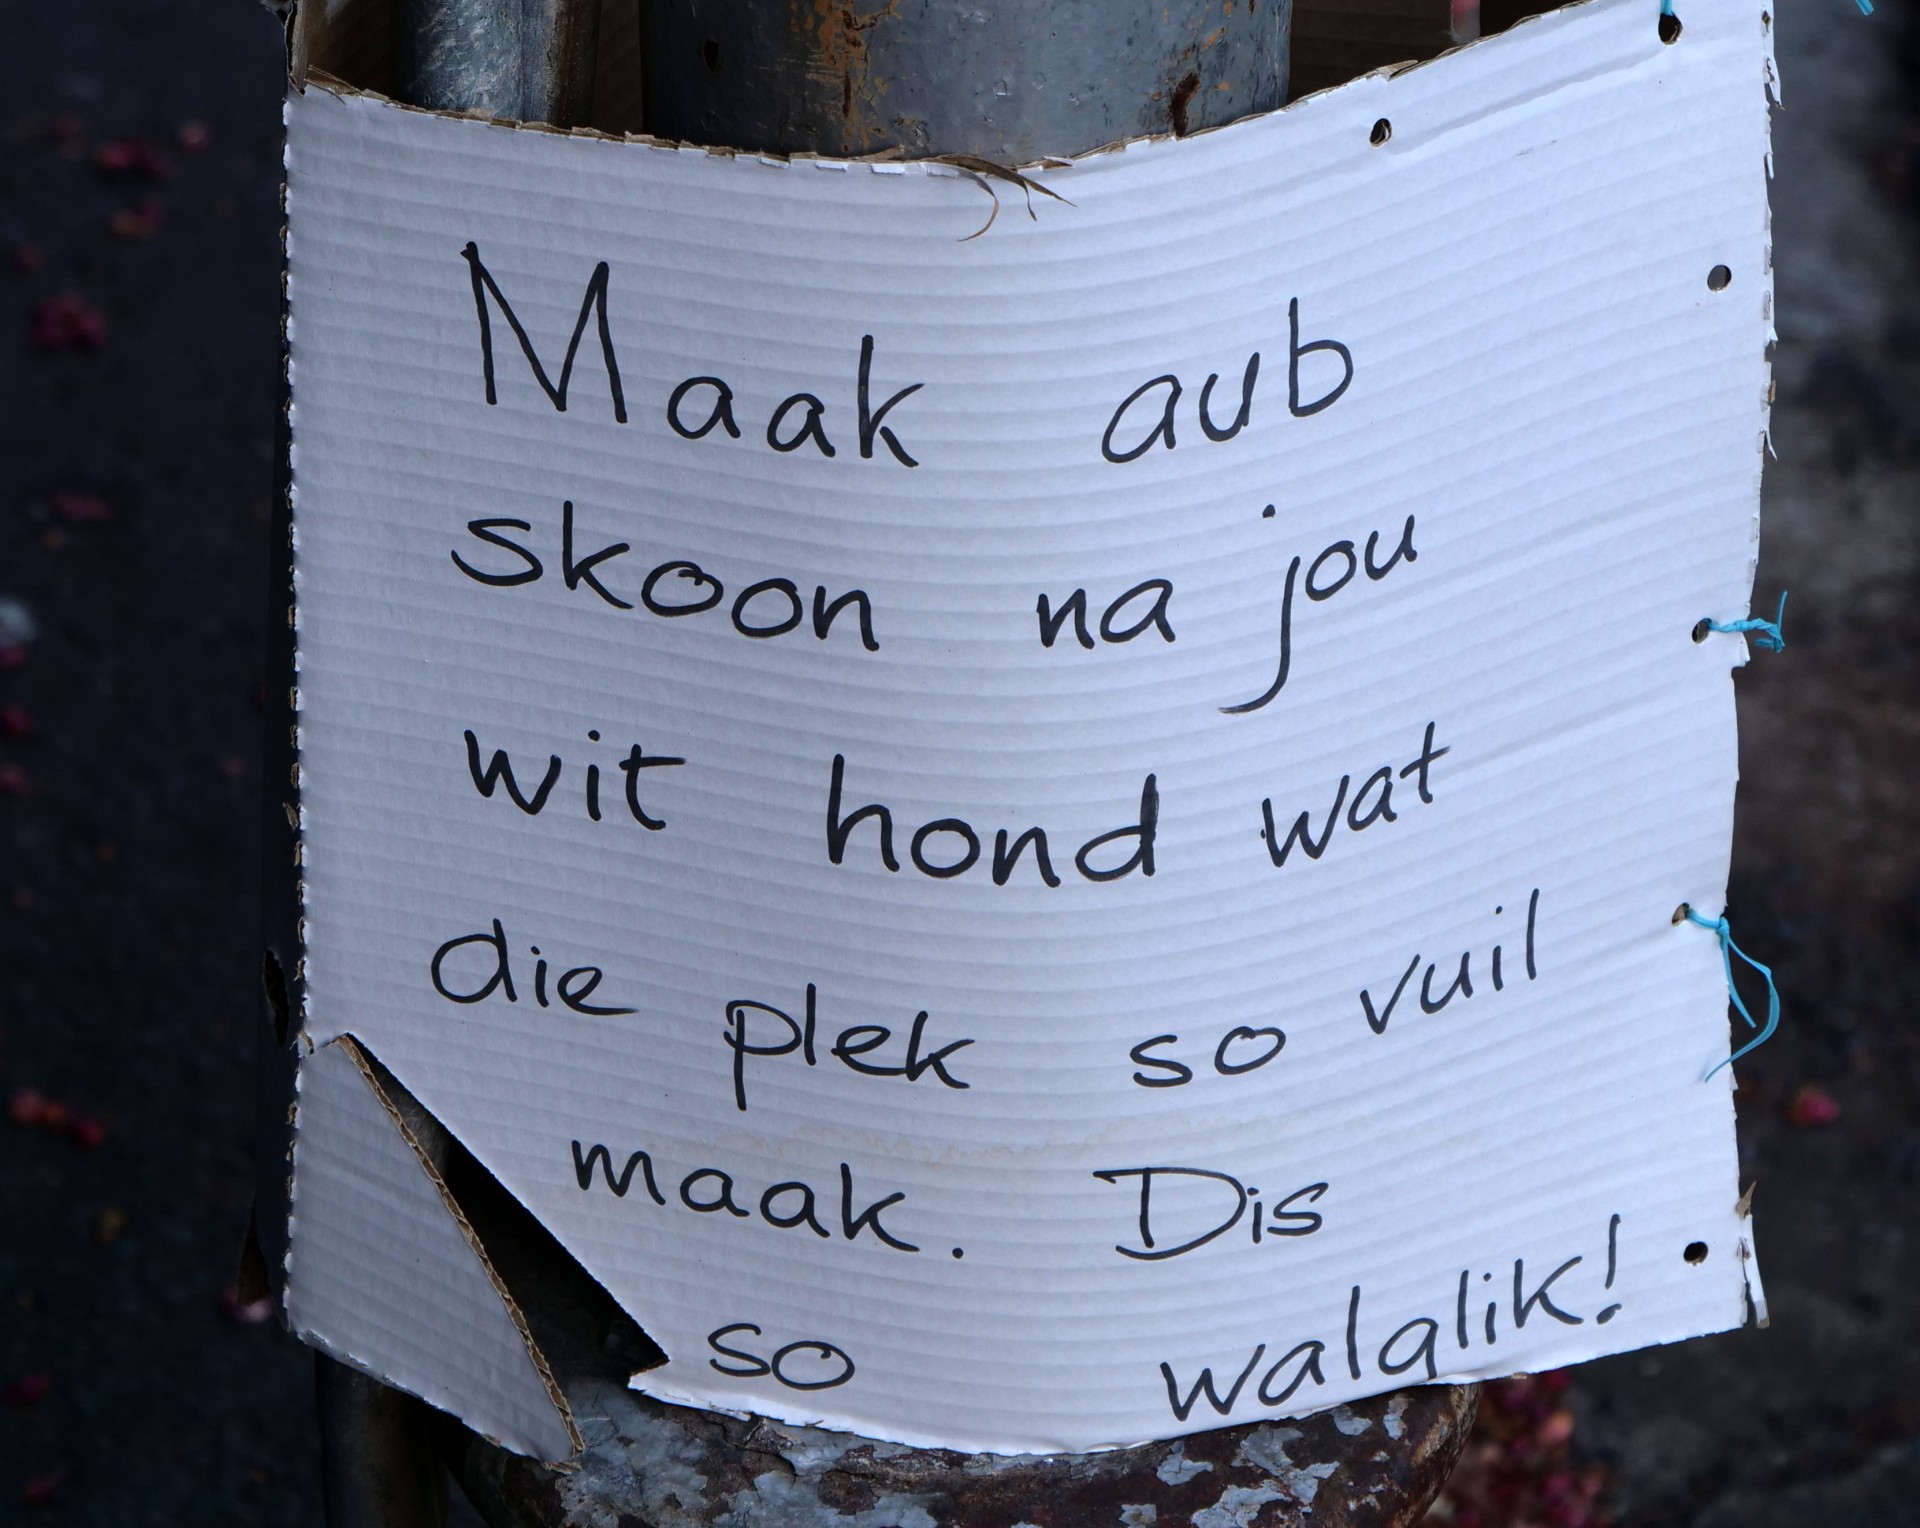 Maak aub
skoon na jou
wit hond wat
die plek so vuil
maak. Dis
so walglik!